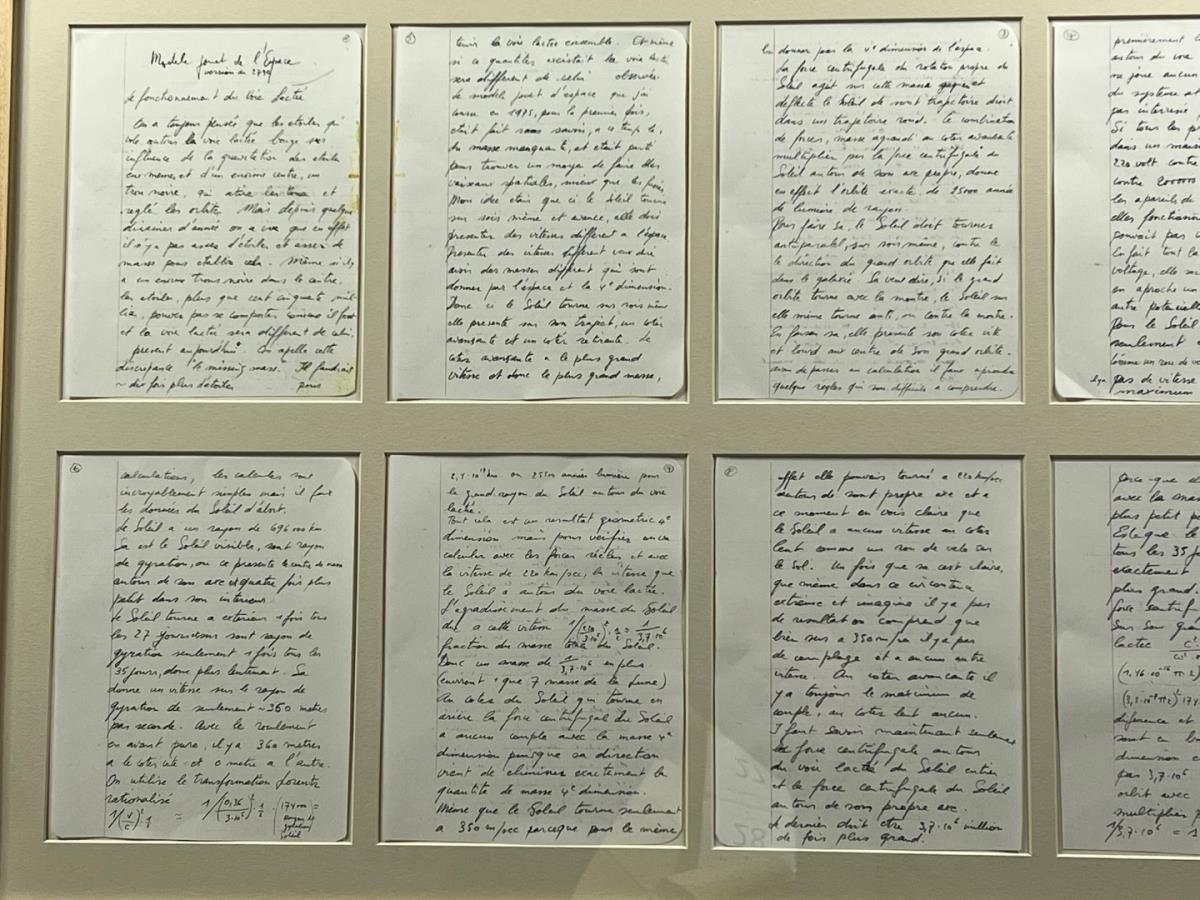 Modele jouet de l'Espace
version de
Le fonctionnement du Voie Lactée
On a toujours pensé que les etoiles qui
la voie lactée bouge sur
influence de la gravitation des etoiles
eux memes, et d'un enorme centre, un
trou noire, qui les tous et
reglé les orbites. Mais depuis quelque
dizaines d'années on a vue que en effet
il n'y a pas assez d'etoiles et assez de
masse pour etablir cela. Même si il y
a un enorme trou noire dans le centre,
les etoiles, plus que cent cinquante mil-
lia, pouvez pas se comporter comme il faut
et la voie lactée sera different de celui,
present aujourd'hui. On apelle cette
discrepance "le missing mass". Il faudrait
~ dix fois plus d'etoiles pour
2
tenir la voie lactée ensemble. Et même
si ce quantités existait la voie lactée
sera different de celui observée.
Le modele jouet d'espace que j'ai
conçu en 1975, pour la premier fois,
etait fait sans savoir, a ce temps la,
du masse manquante, et etait parti
pour trouver un moyen de faire des
vaisseaux spatiales, mieux que les fusées.
Mon idee etais que si le Soleil tourne
sur sois même et avance, elle dois
presenter des vitesses different a l'espace.
Presenter des vitesses different veux dire
avoir des masses different qui sont
donner par l'espace et la 4e dimension.
Donc si le Soleil tourne sur sois même
elle presente sur son traject, un coter
avançante et un coter retirante. Le
coter avançante a le plus grand
vitesse et donc le plus grand masse,
3
donner par la 4e dimension de l'espace.
La force centrifugale du rotation propre du
Soleil agit sur cette masse gagner et
deflecte le Soleil de sont trajectoire droit
dans un trajectoire rond. Le combination
de forces, masse agrandi au coter avançante
multiplier par la force centrifugale du
Soleil autour de son axe propre, donne
en effet l'orbite exacte, de 25000 année
de lumiere de rayon.
Pour faire sa, le Soleil doit tourner
antiparalel, sur sois même, contre le
le direction du grand orbite que elle fait
dans le galaxie. Sa veut dire, si le grand
orbite tourne avec la montre, le Soleil sur
elle même tourne anti, ou contre la montre.
En faisan sa, elle presente son coter vite
et lourd aux centre de son grand orbite.
avan de passer au calculation il faux aprendre
quelque regles qui son difficille a comprendre.
4
premierement
autour du voie
ne joue aucun
du systeme et
pas interessé
Si tous les
dans un
220 volt contre
contre 200000
les apareils de
elles fonction
pouvait pas
En fait tout la
voltage, elle
en aproche un
autre potenciel
Pour le Soleil
seulement
comme un roue de
il y a pas de vitesse
maximum
6
calculations, les calcules sont
incroyablement simples mais il faux
les données du Soleil d'abort.
Le Soleil a un rayon de 696 000 km.
Sa est le Soleil visible, sont rayon
de gyration, ou ce presente le centre de masse
autour de son axe est quatre fois plus
petit dans son interieur.
Le Soleil tourne a exterieur 1 fois tous
les 27 jours sur sont rayon de
gyration seulement 1 fois tous les
35 jours, donc plus lentement. Sa
donne un vitesse sur le rayon de
gyration de seulement ~360 metres
par seconde. Avec le roulement
en avant pure, il y a 360 metres
a le coter vite et 0 metre a l'autre.
On utilise le transformation Lorentz
rationalisé
1/(v/c)² · 1/2 = 1/(0,36/3·10⁵)² · 1/2 (174 000 = rayon de gyration Soleil
7
ou 25000 année lumière pour
le grand rayon du Soleil autour du voie
lacté.
Tout cela est un resultat geometric 4e
dimension mais pour verifier on va
calculer avec les forces réeles et avec
la vitesse de 220 km/sec, la vitesse que
le Soleil a autour du voie lactée.
L'agradissement du masse du Soleil
du a cette vitesse 1/(220/3·10⁵)² · 1/2 = 1/3,7·10⁶
fraction du masse total du Soleil.
Donc un masse de 1/3,7·10⁶ en plus
(environ que 7 masse de la Lune)
Au cotes du Soleil qui tourne en
arriere la force centrifugal du Soleil
a aucun couple avec la masse 4e
dimension puisque sa direction
vient de eliminer exactement la
quantite de masse 4e dimension.
Même que le Soleil tourne seulement
a 350 m/sec parceque pour le même
8
effet elle pouvais tourné a 220 km/sec
autour de sont propre axe et a
ce moment on vois claire que
le Soleil a aucun vitesse au coter
lent comme un roue de velo sur
le sol. Un fois que sa cest claire,
que même dans ce circonstance
extrème et imaginé il y a pas
de resultat on comprend que
bien sur a 350 m/sec il y a pas
de couplage et a aucun autre
vitesse. Au coter avançante il
y a toujour le maximum de
couple, au cotes lent aucun.
I faut savoir maintenant seulement
la force centrifugale autour
du voie lacté du Soleil entier
et la force centrifugale du Soleil
autour de son propre axe.
Le dernier doit etre 3,7·10⁶ million
de fois plus grand.
parce que el
avec la mas
plus petit
Est que le
tous les 35 jo
exactement
plus grand.
force centrifu
Sur son gran
lactée
(1,46·10⁻¹⁶ π·2)
17
diference et
sont en
dimension
par 3,7·10⁶
orbit avec
multiplier
1/3,7·10⁶ = 1